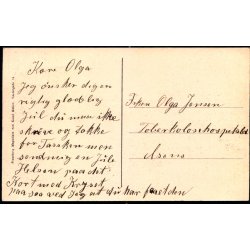 Kære Olga
Jeg ønsker dig en
rigtig glædelig
Jul du maa ikke
skrive og takke
for Tasken men
send mig en Jule
Hilsen paa et
Kort med Kryset
paa saa ved Jeg at du har faaet den
Frøken Olga Jensen
Tuberkolosehospitalet
Assens